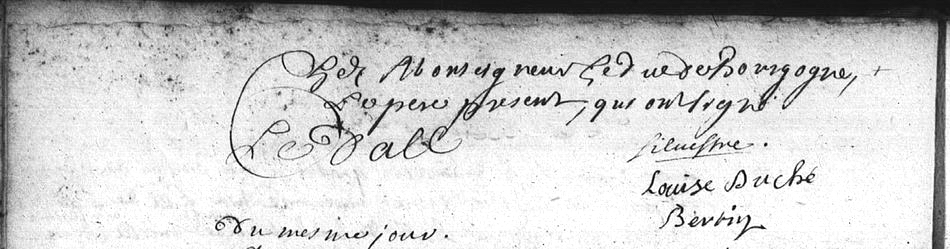 de Monseigneur Le Duc de Bourgogne,
Le pere present, qui ont signé
Silvestre.
Louise Duché
Bertin
Du mesme jour.